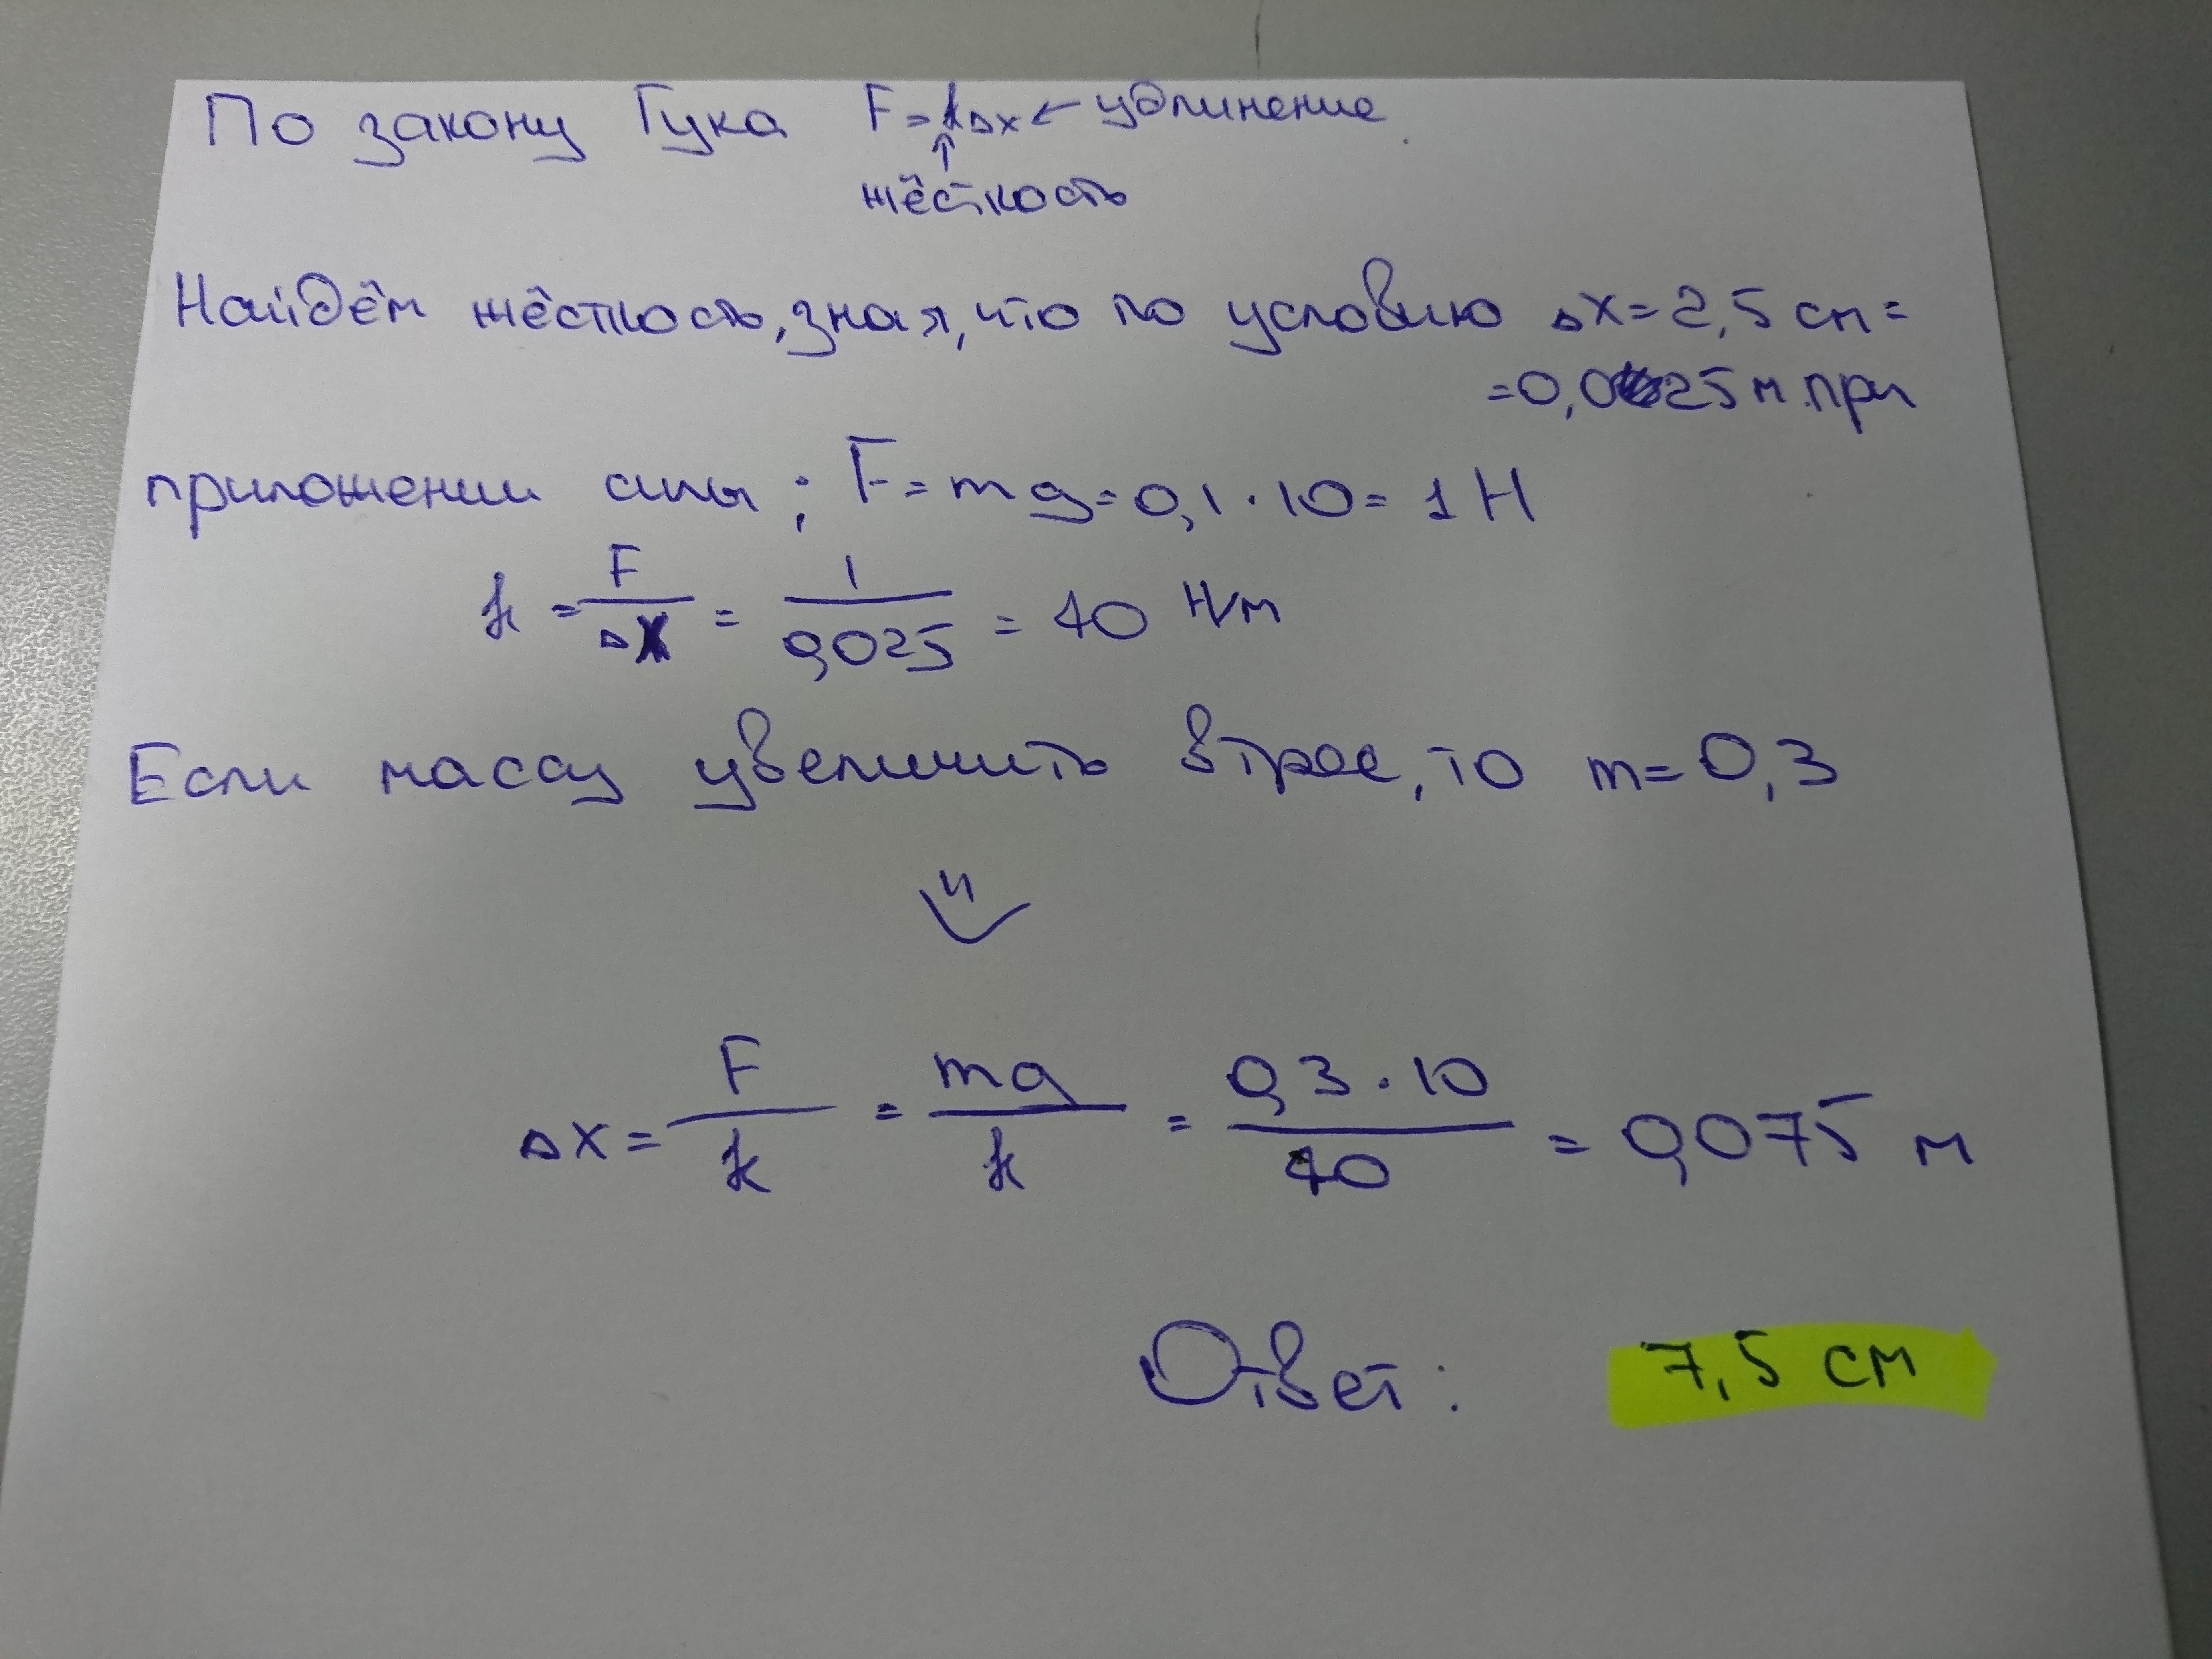 По закону Гука F = kΔx ← удлинение
↑
жёсткость
Найдём жёсткость, зная, что по условию Δx = 2,5 см =
= 0,025 м при
приложении силы ; F = mg = 0,1 · 10 = 1 Н
k = F/Δx = 1/0,025 = 40 Н/м
Если массу увеличить втрое, то m = 0,3
⇓
Δx = F/k = mg/k = 0,3 · 10/40 = 0,075 м
Ответ : 7,5 см